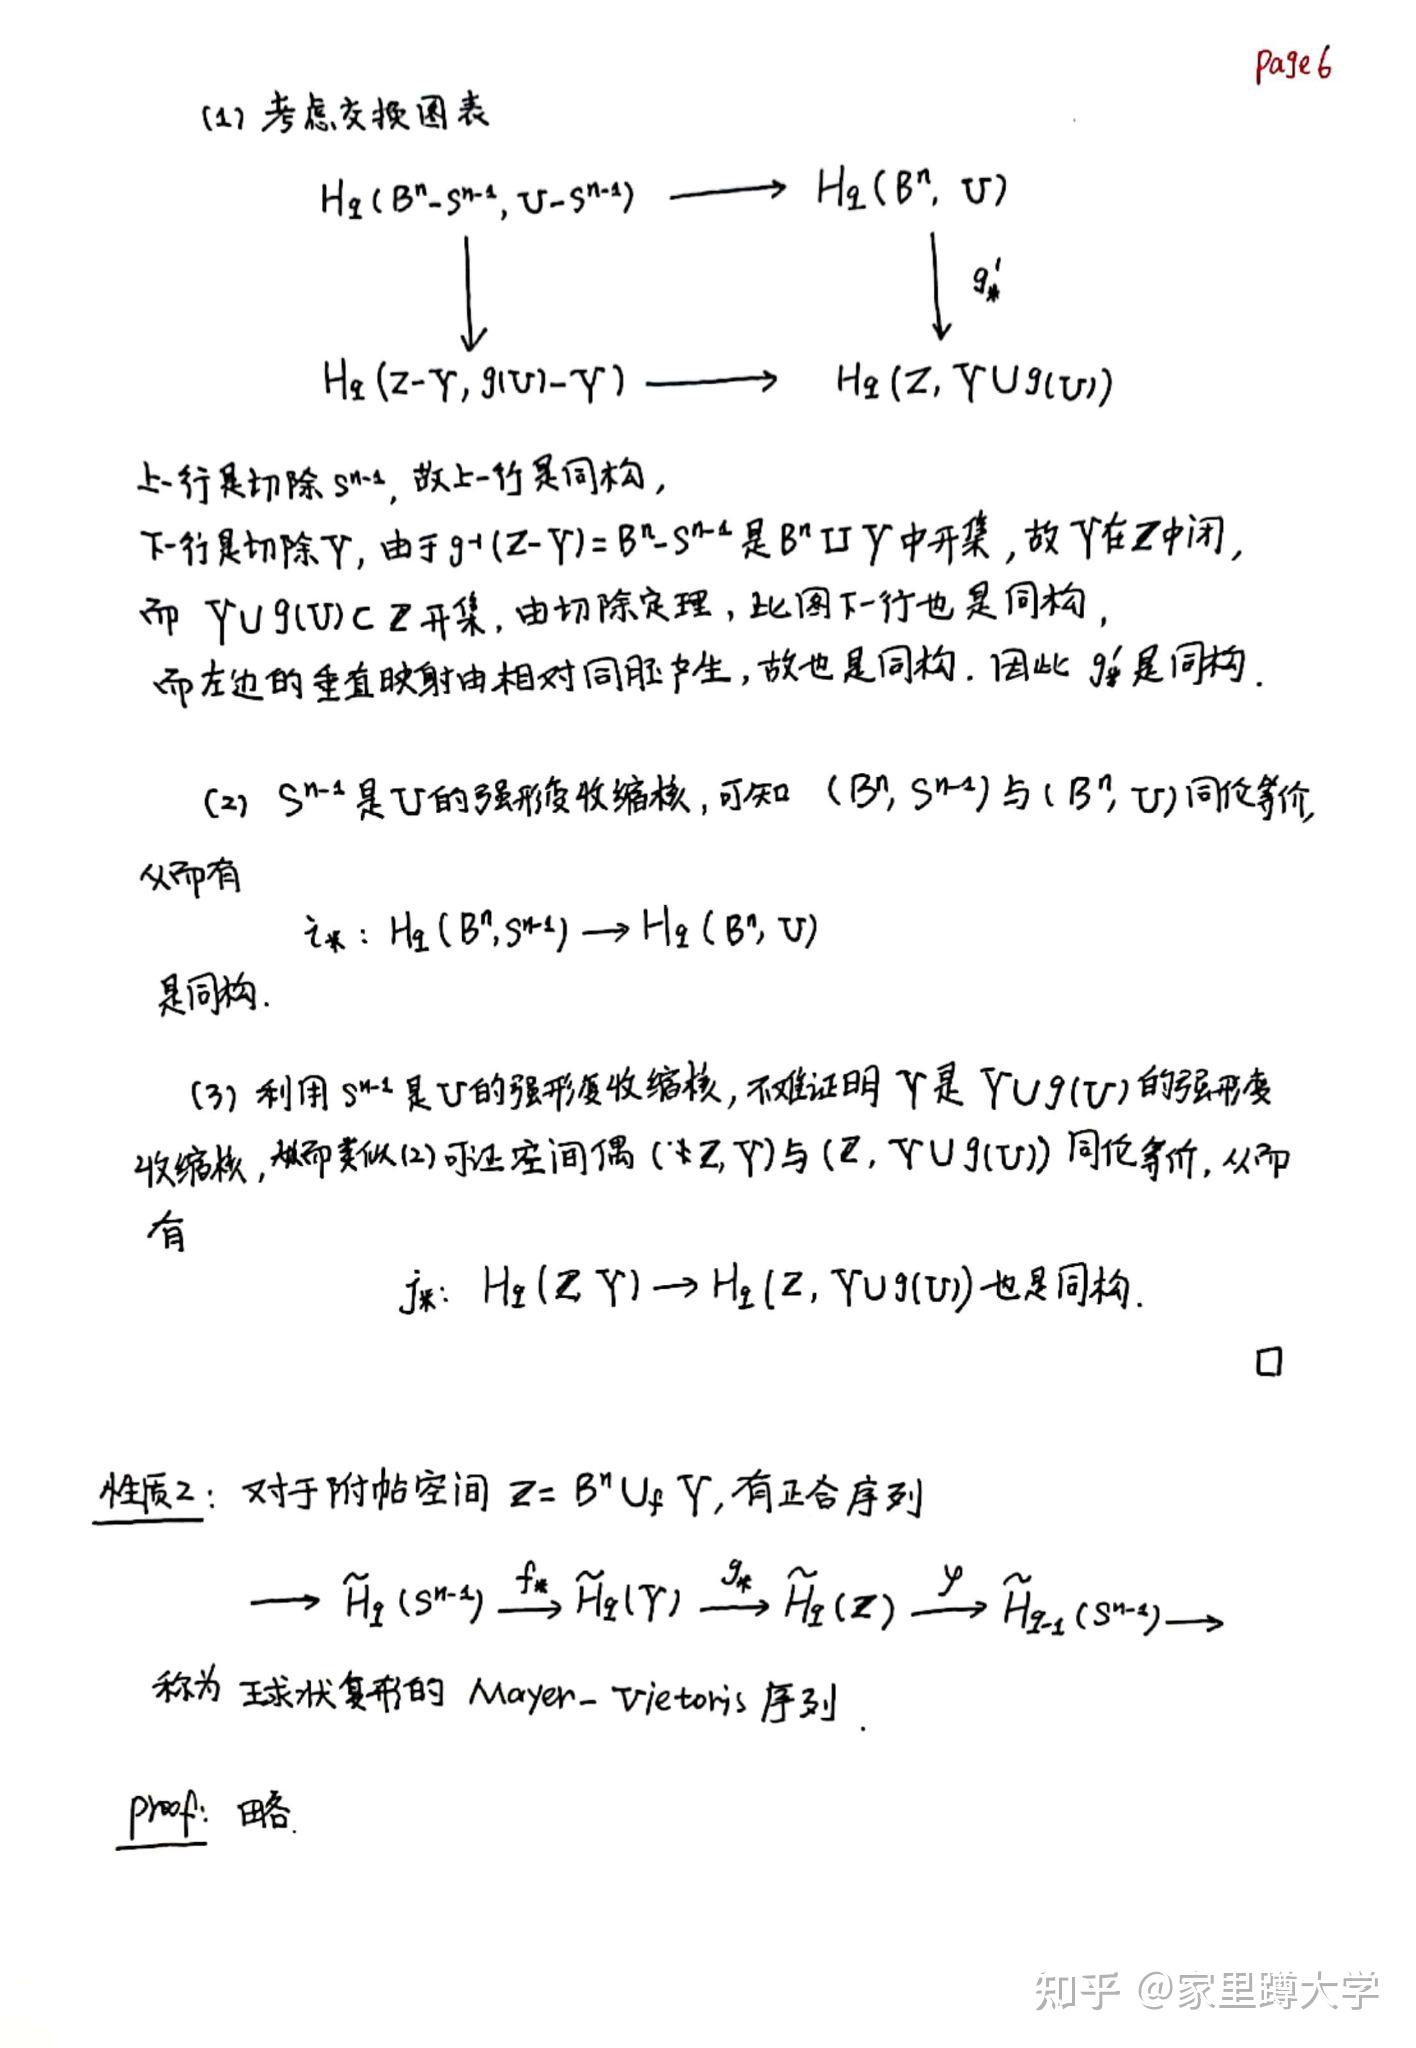 Page 6
(1) 考虑交换图表
H_q(Bⁿ-Sⁿ⁻¹, U-Sⁿ⁻¹) ⟶ H_q(Bⁿ, U)
↓ ↓ g'_*
H_q(Z-Y, g(U)-Y) ⟶ H_q(Z, Y∪g(U))
上一行是切除Sⁿ⁻¹, 故上一行是同构,
下一行是切除Y, 由于g⁻¹(Z-Y)=Bⁿ-Sⁿ⁻¹是Bⁿ⊔Y中开集, 故Y在Z中闭,
而 Y∪g(U)⊂Z开集, 由切除定理, 此图下一行也是同构,
而左边的垂直映射由相对同胚产生, 故也是同构. 因此 g'_* 是同构.
(2) Sⁿ⁻¹是U的强形变收缩核, 可知 (Bⁿ, Sⁿ⁻¹)与(Bⁿ, U)同伦等价,
从而有
i_*: H_q(Bⁿ, Sⁿ⁻¹) → H_q(Bⁿ, U)
是同构.
(3) 利用Sⁿ⁻¹是U的强形变收缩核, 不难证明Y是 Y∪g(U)的强形变
收缩核, 从而类似(2)可证空间偶 (Z, Y)与(Z, Y∪g(U)) 同伦等价, 从而
有
j_*: H_q(Z, Y) → H_q(Z, Y∪g(U)) 也是同构.
□
性质2: 对于附帖空间 Z= Bⁿ∪_f Y, 有正合序列
⟶ H̃_q(Sⁿ⁻¹) ⟶^{f_*} H̃_q(Y) ⟶^{g_*} H̃_q(Z) ⟶^{φ} H̃_{q-1}(Sⁿ⁻¹) ⟶
称为球状复形的 Mayer-Vietoris 序列.
proof: 略.
知乎 @家里蹲大学